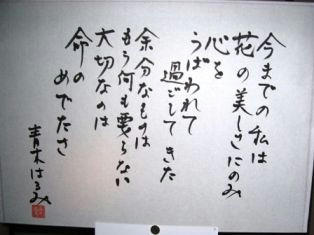 今までの私は
花の美しさにのみ
心を
うばわれて
過ごしてきた
余分なものは
もう何も要らない
大切なのは
命の
めでたさ
青木はるみ